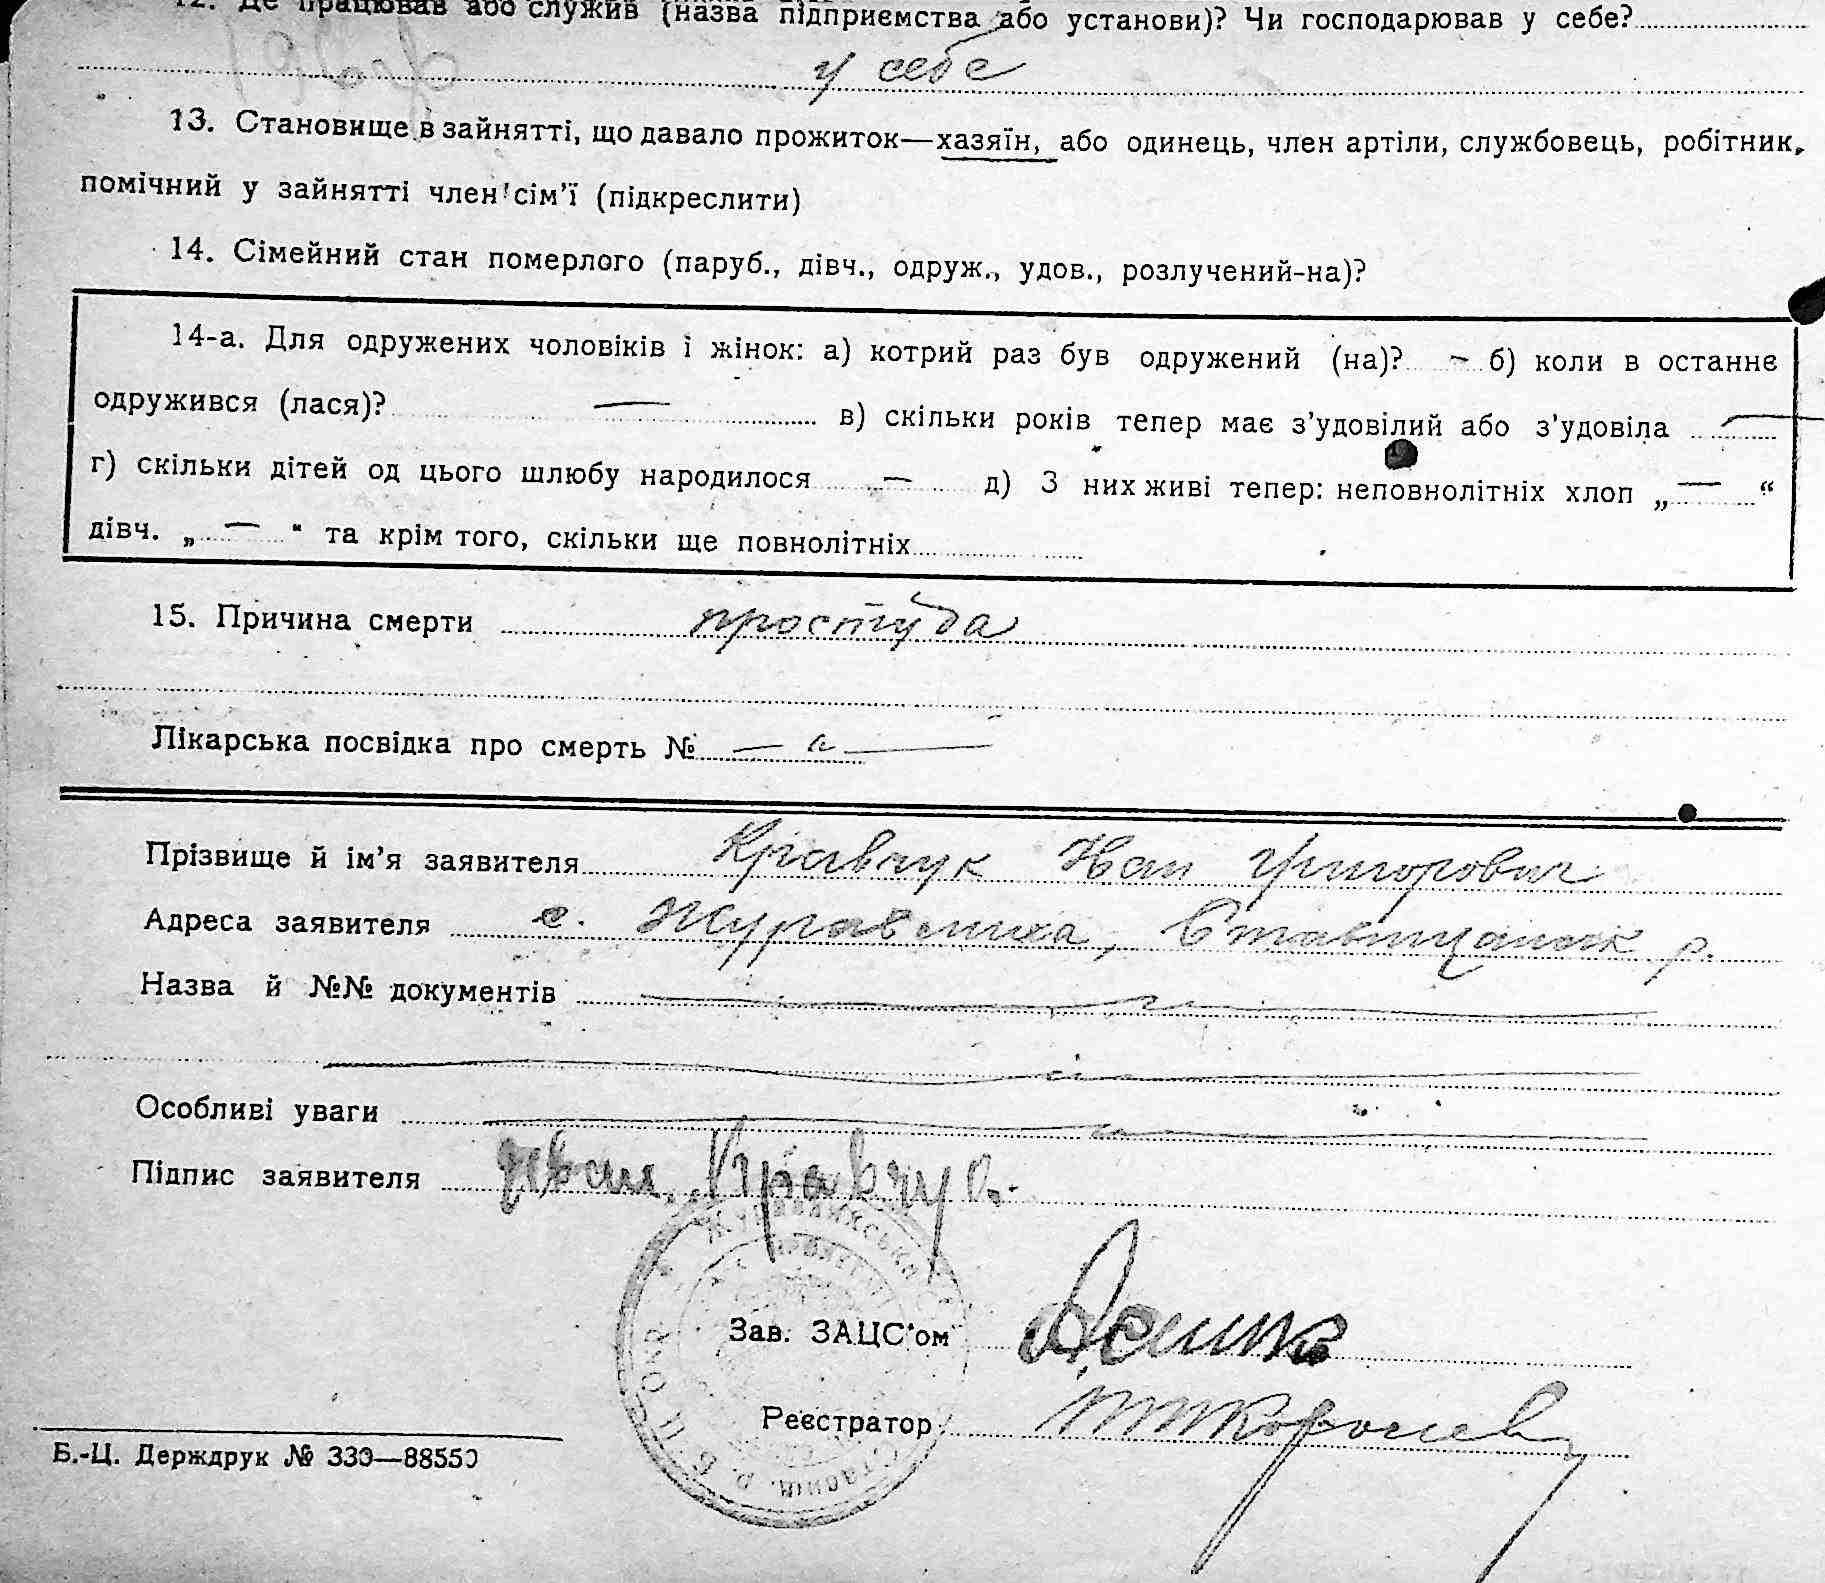 12. Де працював або служив (назва підприємства або установи)? Чи господарював у себе?
у себе
13. Становище в зайнятті, що давало прожиток—хазяїн, або одинець, член артіли, службовець, робітник,
помічний у зайнятті член сім'ї (підкреслити)
14. Сімейний стан померлого (паруб., дівч., одруж., удов., розлучений-на)?
14-а. Для одружених чоловіків і жінок: а) котрий раз був одружений (на)? — б) коли в останнє
одружився (лася)? — в) скільки років тепер має з'удовілий або з'удовіла —
г) скільки дітей од цього шлюбу народилося — д) З них живі тепер: неповнолітніх хлоп „ — “
дівч. „ — “ та крім того, скільки ще повнолітніх
15. Причина смерти простуда
Лікарська посвідка про смерть № — " —
Прізвище й ім'я заявителя Кравчук Іван Григорович
Адреса заявителя с. Журавлиха, Ставищанск р.
Назва й №№ документів — " —
— " —
Особливі уваги — " —
Підпис заявителя Іван Кравчук.
Зав. ЗАЦС'ом
Реєстратор
Б.-Ц. Держдрук № 330—88550